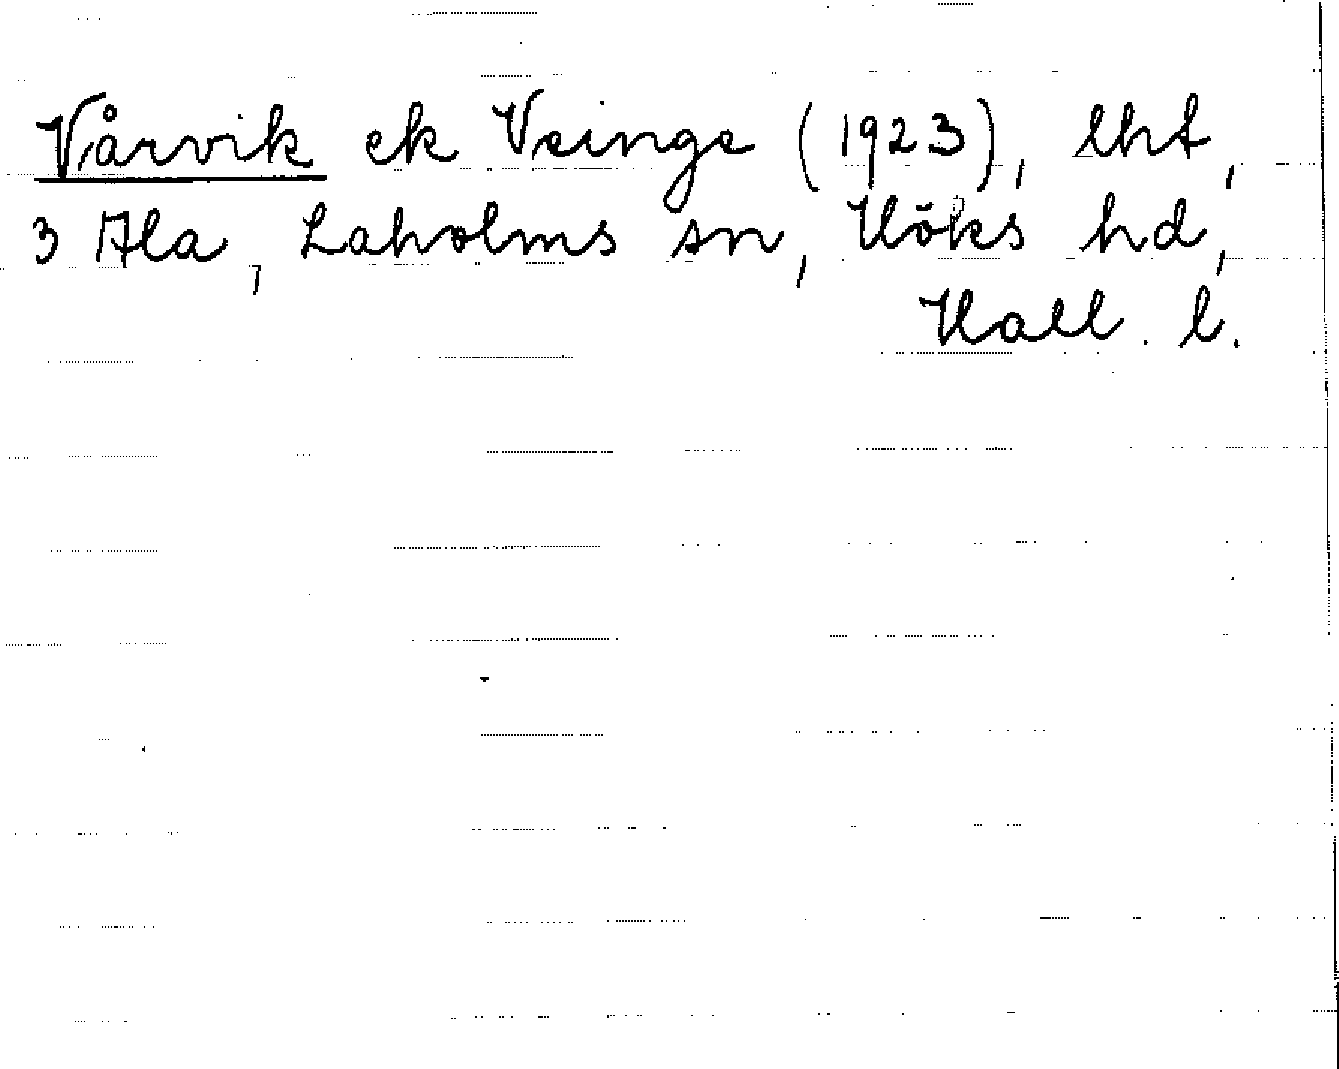 Vårvik ek Veinge (1923), lht,
3 Ala, Laholms sn, Höks hd,
Hall. l.